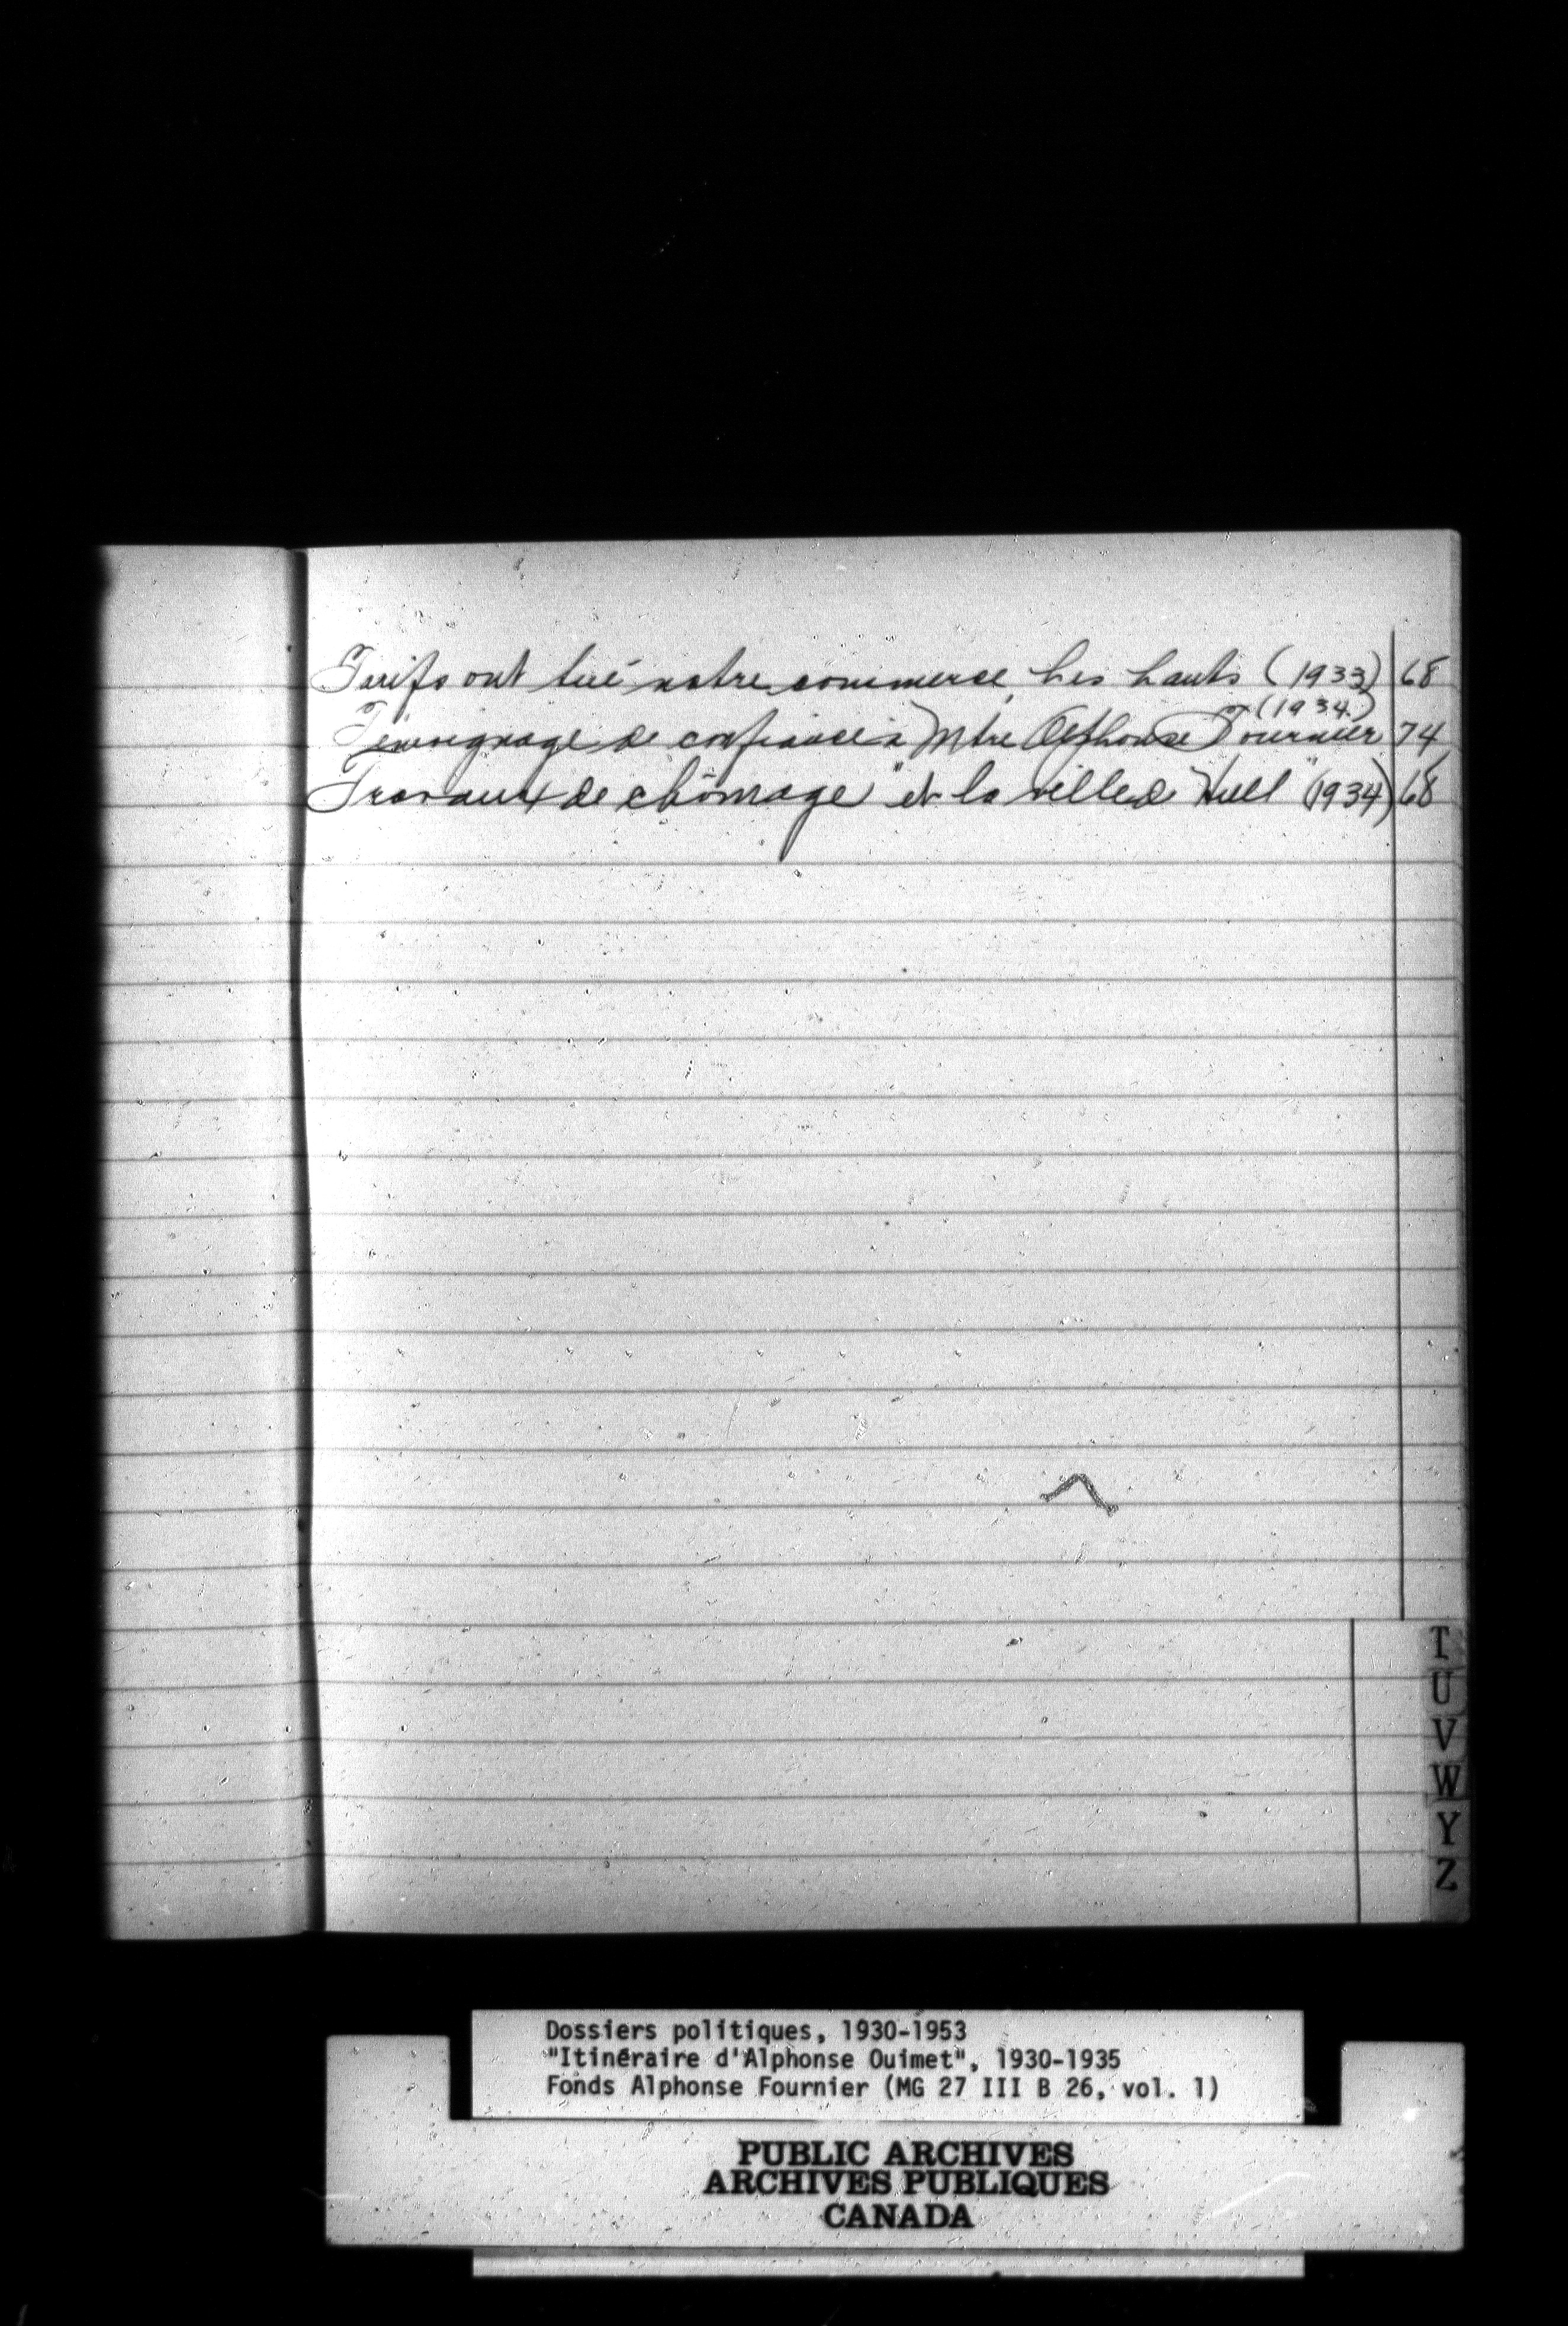 Tarifs ont tué notre commerce, Les hauts (1933) 68
(1934)
Témoignage de confiance à Mtre Alphonse Fournier 74
Travaux de chômage "et la ville de Hull" (1934) 68
T
U
V
W
Y
Z
Dossiers politiques, 1930-1953
"Itinéraire d'Alphonse Ouimet", 1930-1935
Fonds Alphonse Fournier (MG 27 III B 26, vol. 1)
PUBLIC ARCHIVES
ARCHIVES PUBLIQUES
CANADA